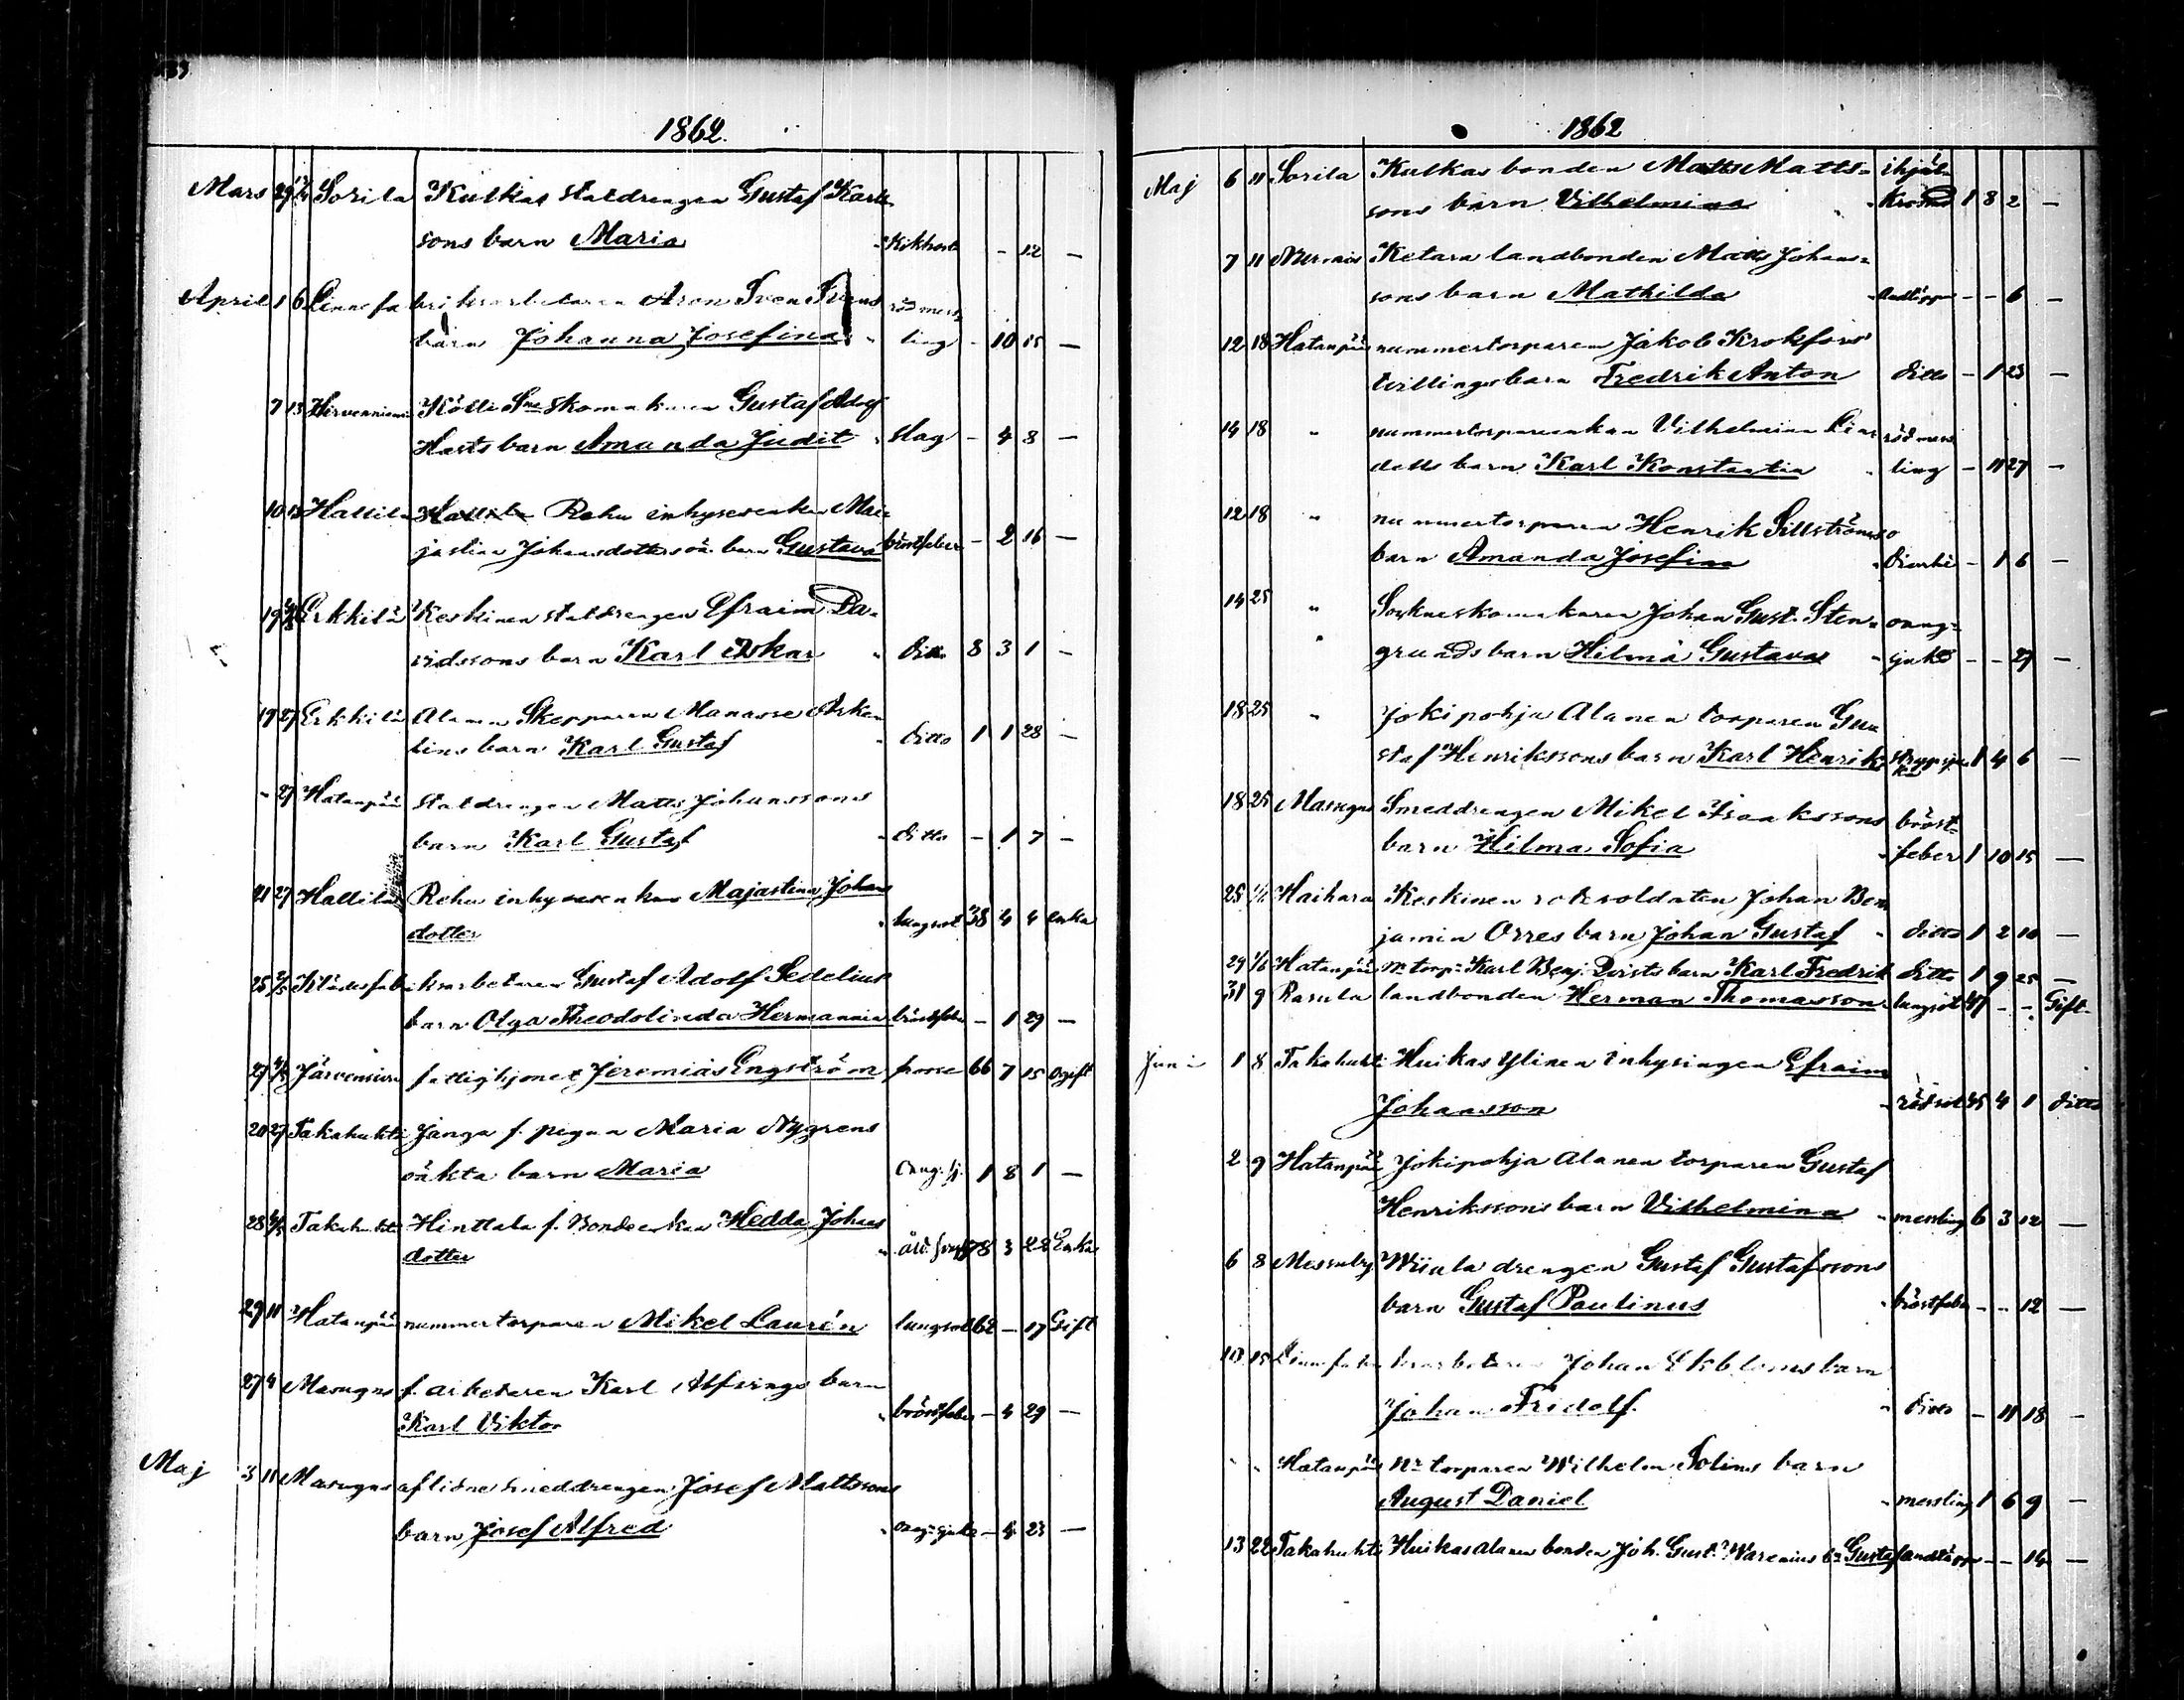 1862.
Mars 29 Sorila Kulkas staldrengen Gustaf Karls
sons barn Maria Kikhosta - 12 -
April 1 6 Linnefabriksarbetaren Aron Sven Svens rödmess
barn Johanna Josefina ling - 10 15 -
7 13 Hirvenniemi Kölli Skomakaren Gustaf Adolf
Harts barn Amanda Judit Slag - 4 8 -
10 13 Hallila Rehu inhysesenkan Mai
jastina Johansdotters oä. barn Gustava bröstfeber - 2 16 -
19 Erkkilä Keskinen staldrengen Efraim Da-
vidssons barn Karl Oskar ditto 8 3 1 -
19 27 Erkkilä Alanen Skepparen Manasse
lins barn Karl Gustaf ditto 1 1 28 -
- 27 Hatanpää staldrengen Matts Johanssons
barn Karl Gustaf ditto - 1 7 -
21 27 Hallila Rehu inhysesenkan Majastina Johans
dotter lungsot 38 4 4 enka
25 2/5 Klädesfabriksarbetaren Gustaf Adolf Sedelius
barn Olga Theodolinda Hermannia bröstfeber - 1 29 -
27 4/5 Järvensivu fattighjonet Jeremias Engström 66 7 15 Ogift
20 27 Takahuhti Janga f. pigan Maria Nygrens
oäkta barn Maria Oäng. sj. 1 8 1 -
28 4/5 Takahuhti Hinttala f. Bondeenkan Hedda Johans
dotter 78 3 28 Enka
29 11 Hatanpää nummertorparen Mikel Laurén lungsot 62 - 17 Gift
27 4 Masugns f. arbetaren Karl Alfsings barn
Karl Viktor bröstfeber - 4 29 -
Maj 3 11 Masugns aflidne smeddrengen Josef Mattssons
barn Josef Alfred - 4 23 -
1862
Maj 6 11 Sorila Kulkas bonden Matts Matts- ihjäl-
sons barn Vilhelmina krossad 1 8 2 -
7 11 Ketara landbonden Matts Johans-
sons barn Mathilda Andtäppa - - 6 -
12 18 Hatanpää nummertorparen Jakob Krokfors
tvillingebarn Fredrik Anton ditto - 1 23 -
14 18 " nummertorpareenkan Vilhelmina Lin rödmess
detts barn Karl Konstantin ling - 11 27 -
12 18 " nummertorparen Henrik Sillströms
barn Amanda Josefina diarhé - 1 6 -
14 25 " Sockneskomakaren Johan Gust. Sten- oäng-
grunds barn Hilma Gustava sjukd - - 27 -
18 25 " Jokipohja Alanen torparen Gu
staf Henrikssons barn Karl Henrik strypsju 1 4 6 -
18 25 Masugns Smeddrengen Mikel Isaakssons bröst-
barn Hilma Sofia feber 1 10 15 -
25 1/6 Haihara Keskinen rotesoldaten Johan Ben
jamin Orres barn Johan Gustaf ditto 1 2 10 -
29 1/6 Hatanpää nr torp. Karl Benj. Qvists barn Karl Fredrik ditto 1 9 25 -
31 9 Rasula landbonden Herman Thomasson lungsot 47 - - Gift
Juni 1 8 Takahuhti Huikas Ylinen inhysingen Efraim
Johansson rödsot 45 4 1 ditto
2 9 Hatanpää Jokipohja Alanen torparen Gustaf
Henrikssons barn Vilhelmina messling 6 3 12 -
6 8 Messuby Wiiala drengen Gustaf Gustafssons
barn Gustaf Paulinus bröstfeber - - 12 -
10 15 Linnefabriksarbetaren Johan Ekbloms barn
Johan Fridolf ditto - 11 18 -
" " Hatanpää Nr torparen Wilhelm Solins barn
August Daniel messling 1 6 9 -
13 22 Takahuhti Huikas Alanen bonden Joh. Gust. Warenius bn Gustaf andtäppa - - 14 -